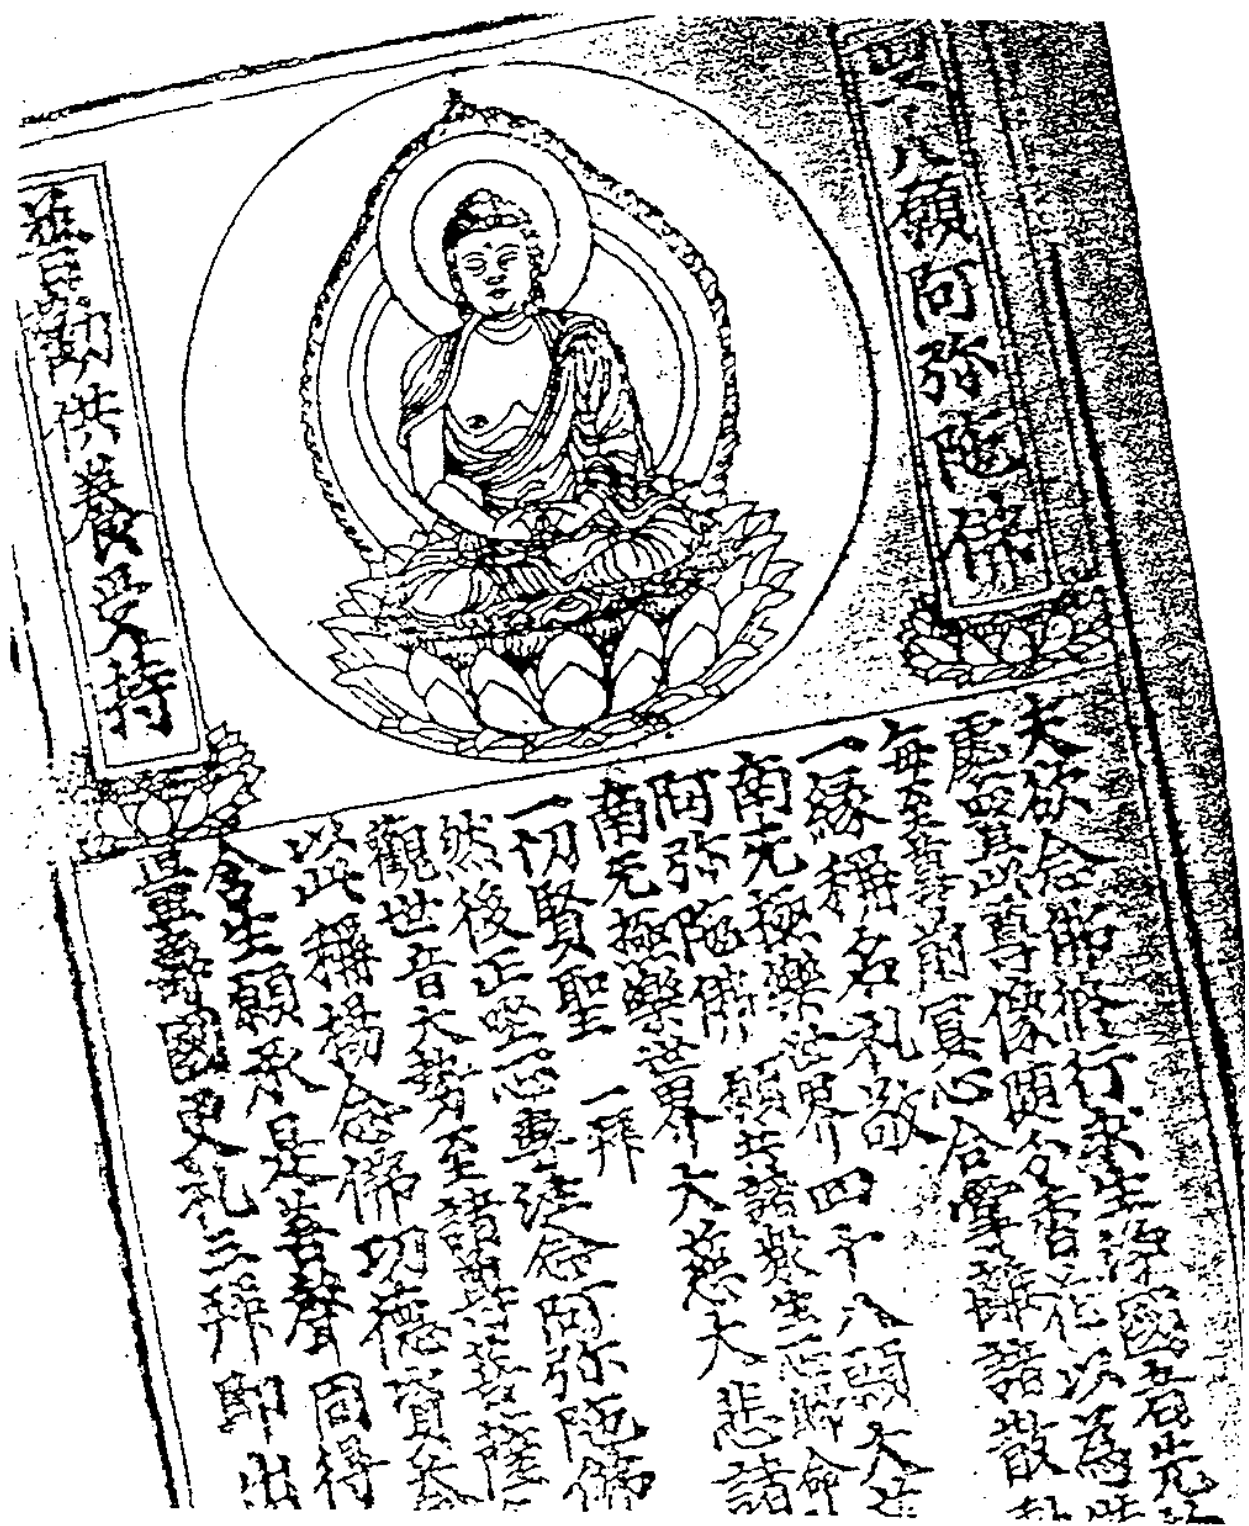 八願阿弥陁佛
普勸供養受持
夫欲念佛修行求生淨國者先
處置此尊像便分香花以為
每至尊前冥心合掌離諸散
一緣稱名礼敬
南无極樂世界四十八願大
阿弥陁佛 願共諸衆生一心歸命
南无極樂世界大慈大悲諸
一切賢聖 一拜
然後正坐一心專注念阿弥陁佛
觀世音大勢至諸菩薩
以此稱揚念佛功德資
含生願承是善聲同得
國更礼三拜即出